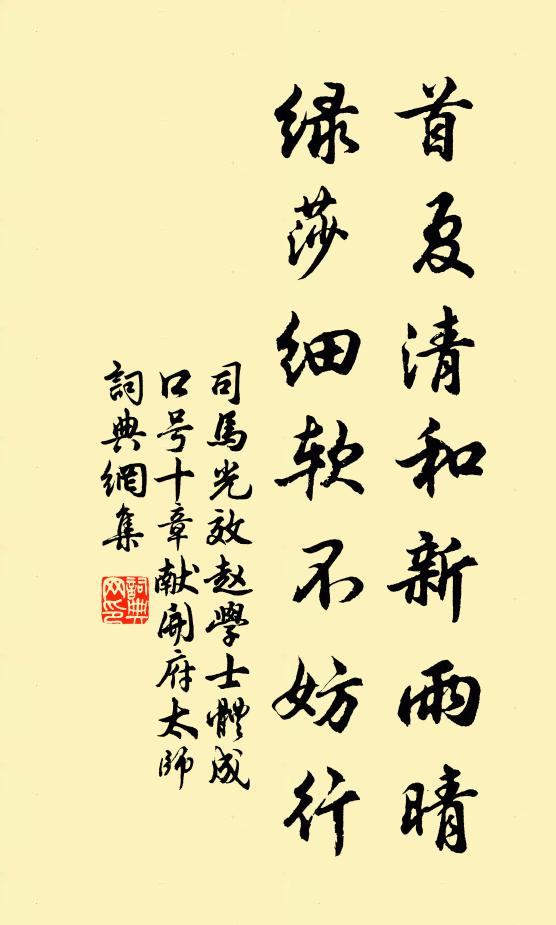 首夏清和新雨晴
绿莎细软不妨行
司馬光效赵學士體成
口号十章献開府太師
詞典網集
詞典網印